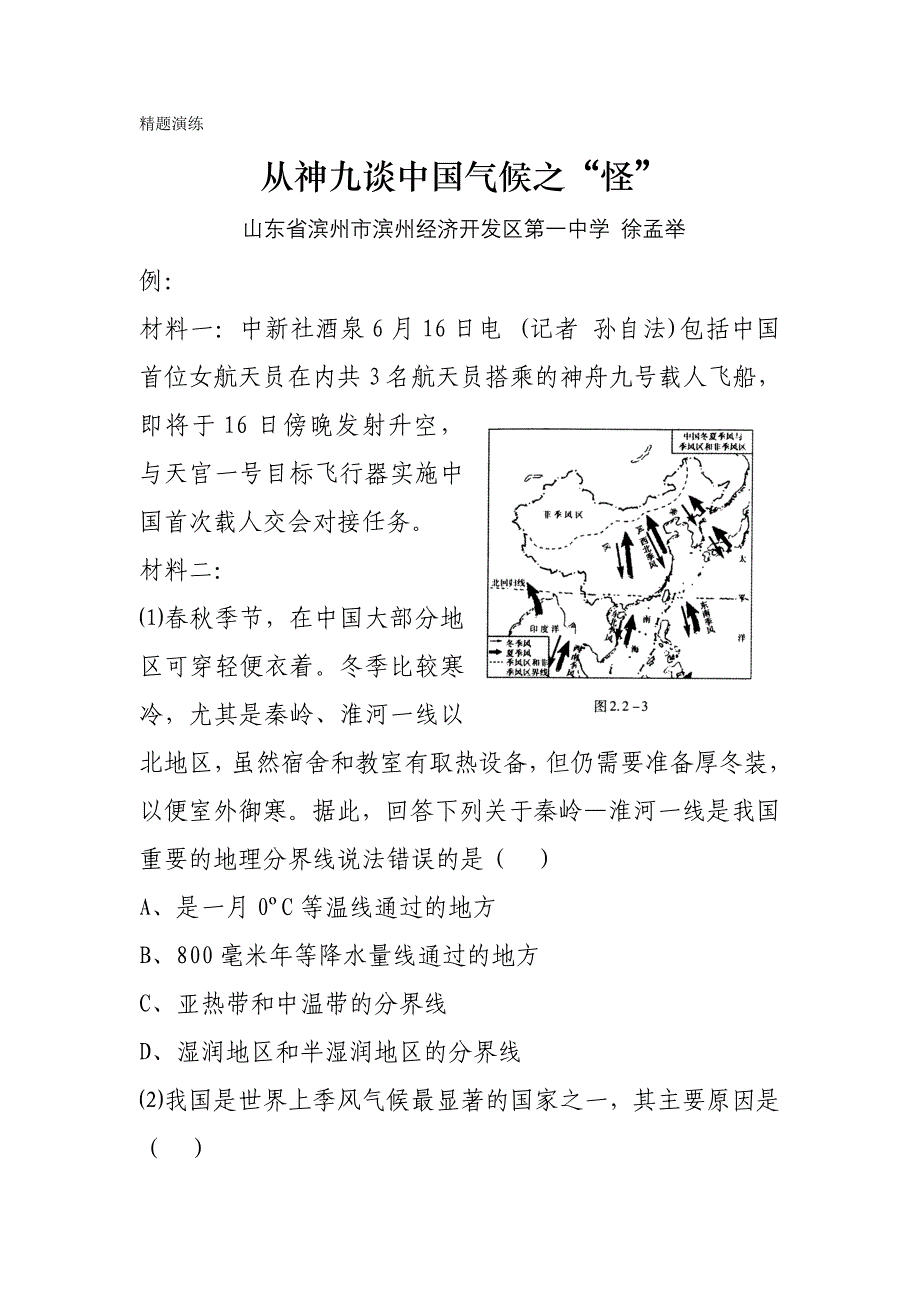 精题演练
从神九谈中国气候之“怪”
山东省滨州市滨州经济开发区第一中学 徐孟举
例：
材料一：中新社酒泉6月16日电 (记者 孙自法)包括中国
首位女航天员在内共3名航天员搭乘的神舟九号载人飞船，
即将于16日傍晚发射升空，
与天宫一号目标飞行器实施中
国首次载人交会对接任务。
材料二：
⑴春秋季节，在中国大部分地
区可穿轻便衣着。冬季比较寒
冷，尤其是秦岭、淮河一线以
中国冬夏季风与
季风区和非季风区
非季风区
西北季风
北回归线
太
平
洋
印度洋
南
海
东南季风
冬季风
夏季风
季风区和非
季风区界线
图2.2-3
北地区，虽然宿舍和教室有取热设备，但仍需要准备厚冬装，
以便室外御寒。据此，回答下列关于秦岭—淮河一线是我国
重要的地理分界线说法错误的是（ ）
A、是一月0ºC等温线通过的地方
B、800毫米年等降水量线通过的地方
C、亚热带和中温带的分界线
D、湿润地区和半湿润地区的分界线
⑵我国是世界上季风气候最显著的国家之一，其主要原因是
（ ）